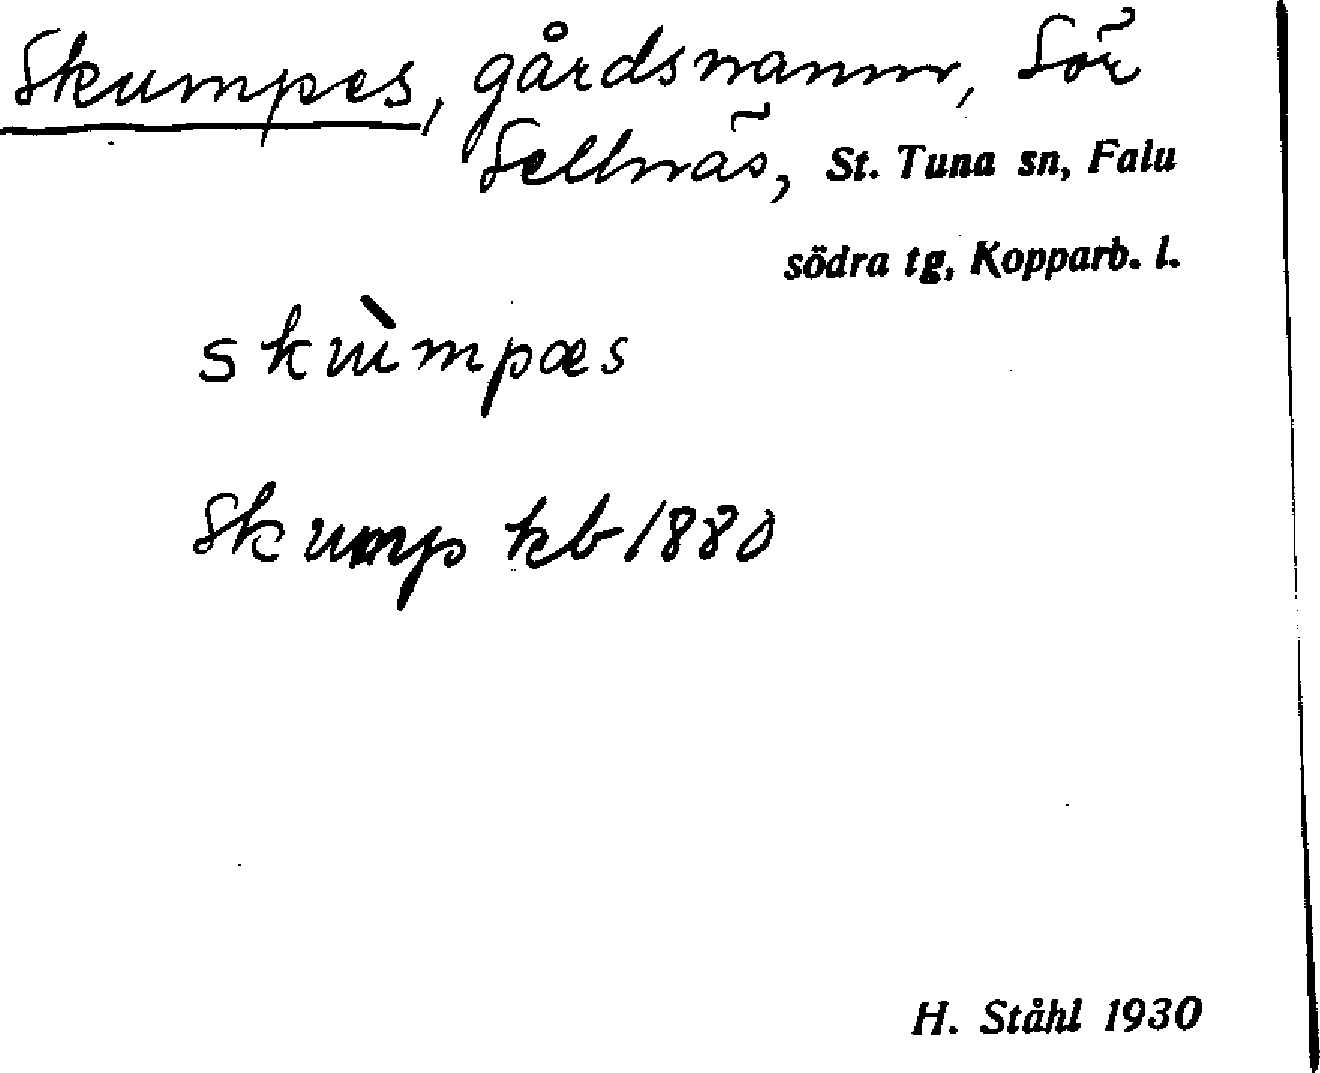 Skumpes, gårdsnamn, Sör
Sellnäs, St. Tuna sn, Falu
södra tg, Kopparb. l.
skùmpæs
Skump kb 1880
H. Ståhl 1930